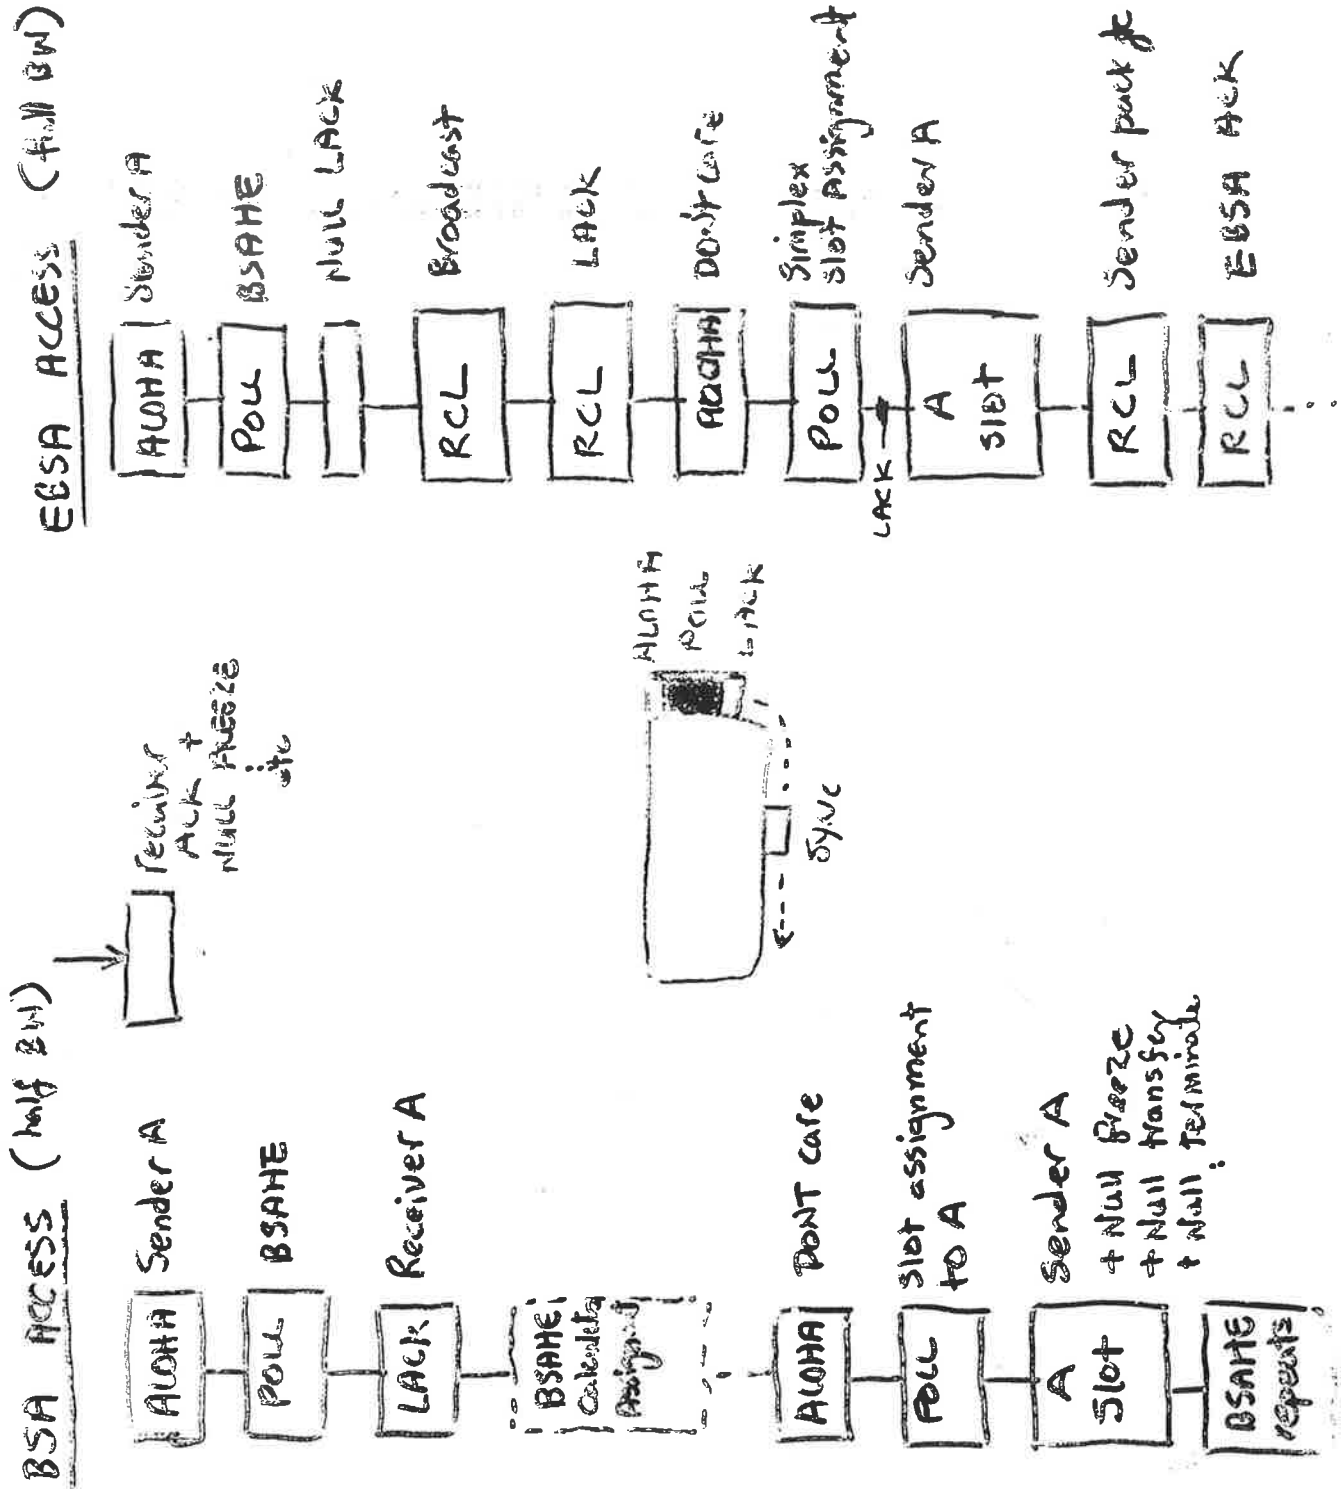 BSA ACCESS (half BW)
ALOHA Sender A
POLL BSAHE
LACK Receiver A
BSAHE
Calculates
Assignmt
ALOHA DONT care
POLL Slot assignment
to A
A
Slot
Sender A
+ Null freeze
+ Null transfer
+ Null Terminate
BSAHE
repeats
receiver
ACK +
NULL FREEZE
etc
ALOHA
POLL
LACK
Sync
EBSA ACCESS (full BW)
ALOHA Sender A
POLL BSAHE
NULL LACK
RCL Broadcast
RCL LACK
ALOHA DONT care
POLL Simplex
slot Assignment
LACK
A
slot
Sender A
RCL Sender pack
RCL EBSA ACK